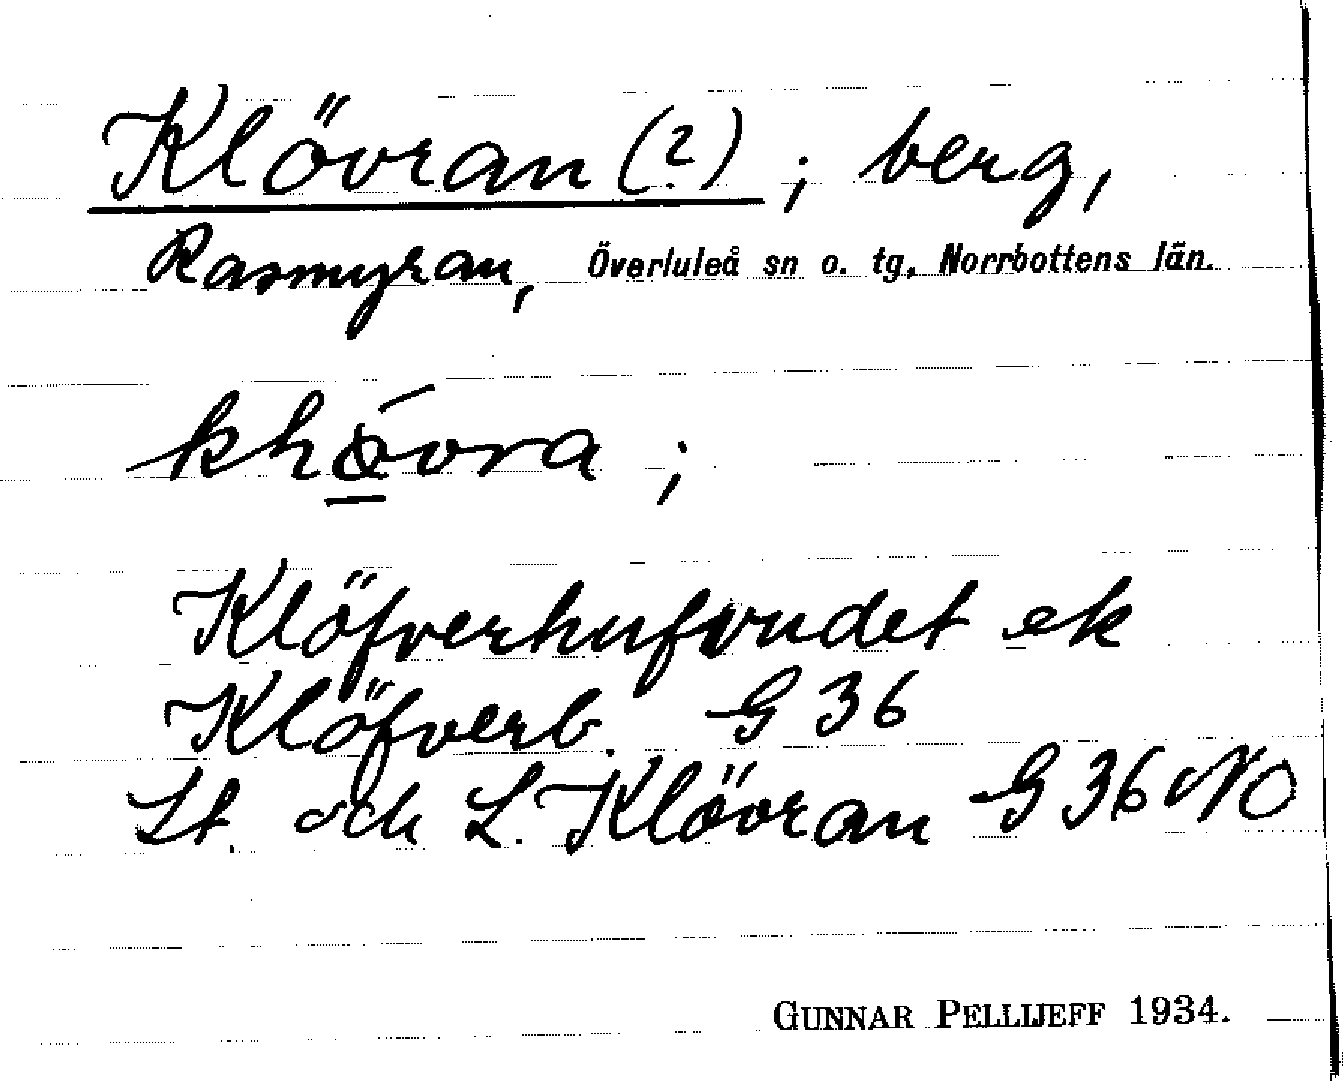 Klövran (?) ; berg,
Rasmyran, Överluleå sn o. tg, Norrbottens län.
Klöfverhufvudet ek
Klöfverb. G 36
St. och L. Klövran G 36 NO
GUNNAR PELLIJEFF 1934.